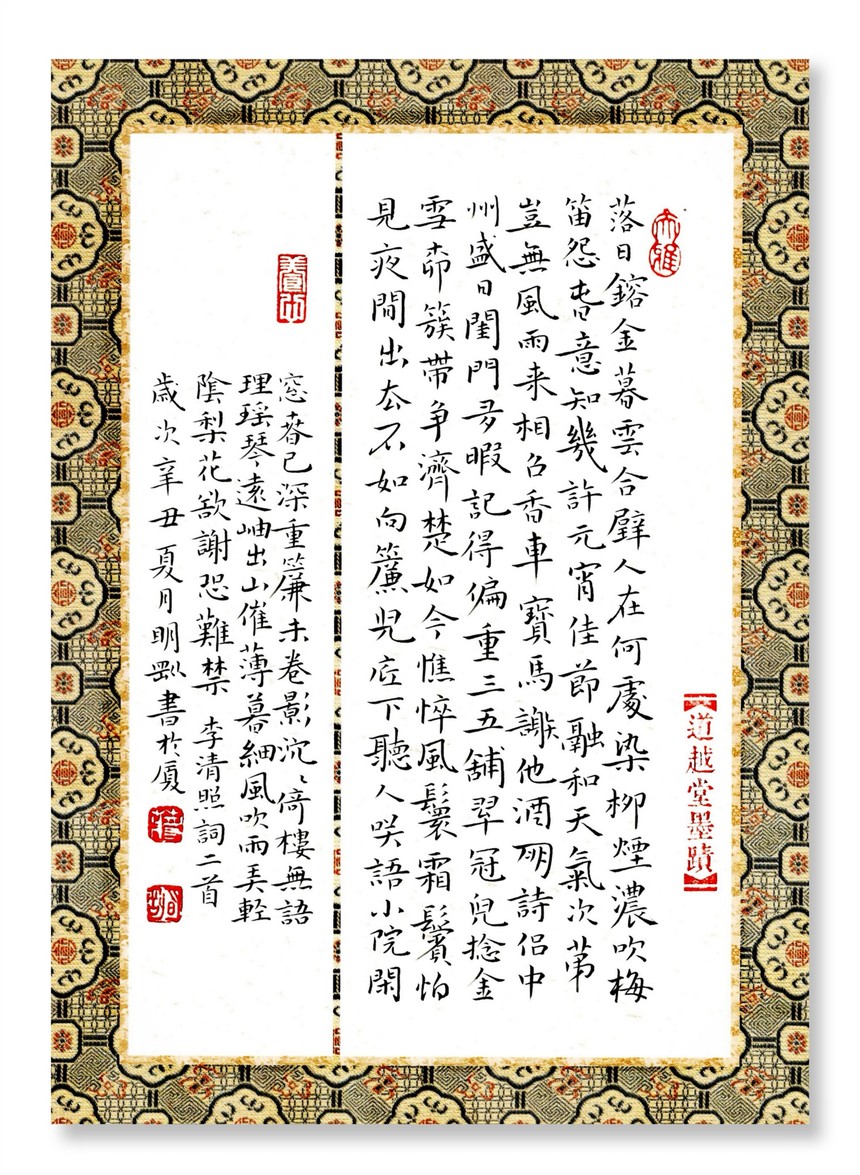 道越堂墨蹟
落日鎔金暮雲合璧人在何處染柳煙濃吹梅
笛怨春意知幾許元宵佳節融和天氣次第
豈無風雨来相召香車寶馬謝他酒朋詩侣中
州盛日閨門多暇記得偏重三五舖翠冠兒捻金
雪柳簇帶争濟楚如今憔悴風鬟霜鬢怕
見夜間出去不如向簾兒底下聽人笑語小院閑
窓春已深重簾未卷影沉〻倚樓無語
理瑶琴遠岫出山催薄暮細風吹雨弄輕
陰梨花欲謝恐難禁 李清照詞二首
歲次辛丑夏月明書於厦